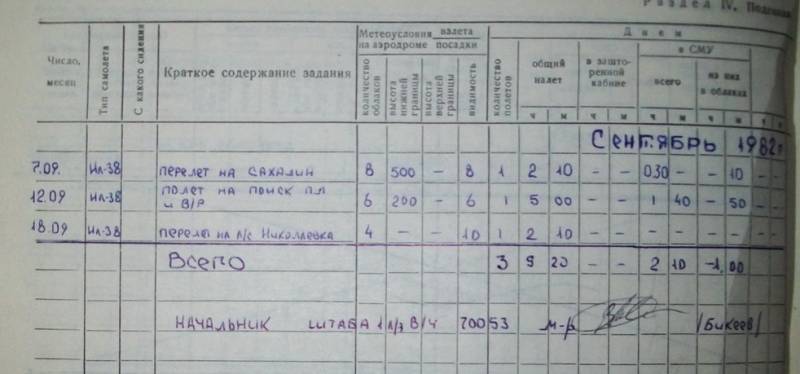 Раздел IV.
Число, месяц | Тип самолета | С какого сидения | Краткое содержание задания | Метеоусловия взлета на аэродроме посадки | Днем
количество облаков | высота нижней границы | высота верхней границы | видимость | количество полетов | общий налет | в зашторенной кабине | в СМУ
всего | из них в облаках
ч м ч м ч м ч м
Сентябрь 1982г
7.09. Ил-38 перелет на Сахалин 8 500 – 8 1 2 10 – – 030 – – 10 –
12.09 Ил-38 полет на поиск пл и в/р 6 200 – 6 1 5 00 – – 1 40 – 50 –
18.09 Ил-38 перелет на п/с Николаевка 4 – – 10 1 2 10 – – – – – – –
Всего 3 9 20 – – 2 10 –1,00
Начальник штаба 1 л/э в/ч 70053 м-р /Бикеев/